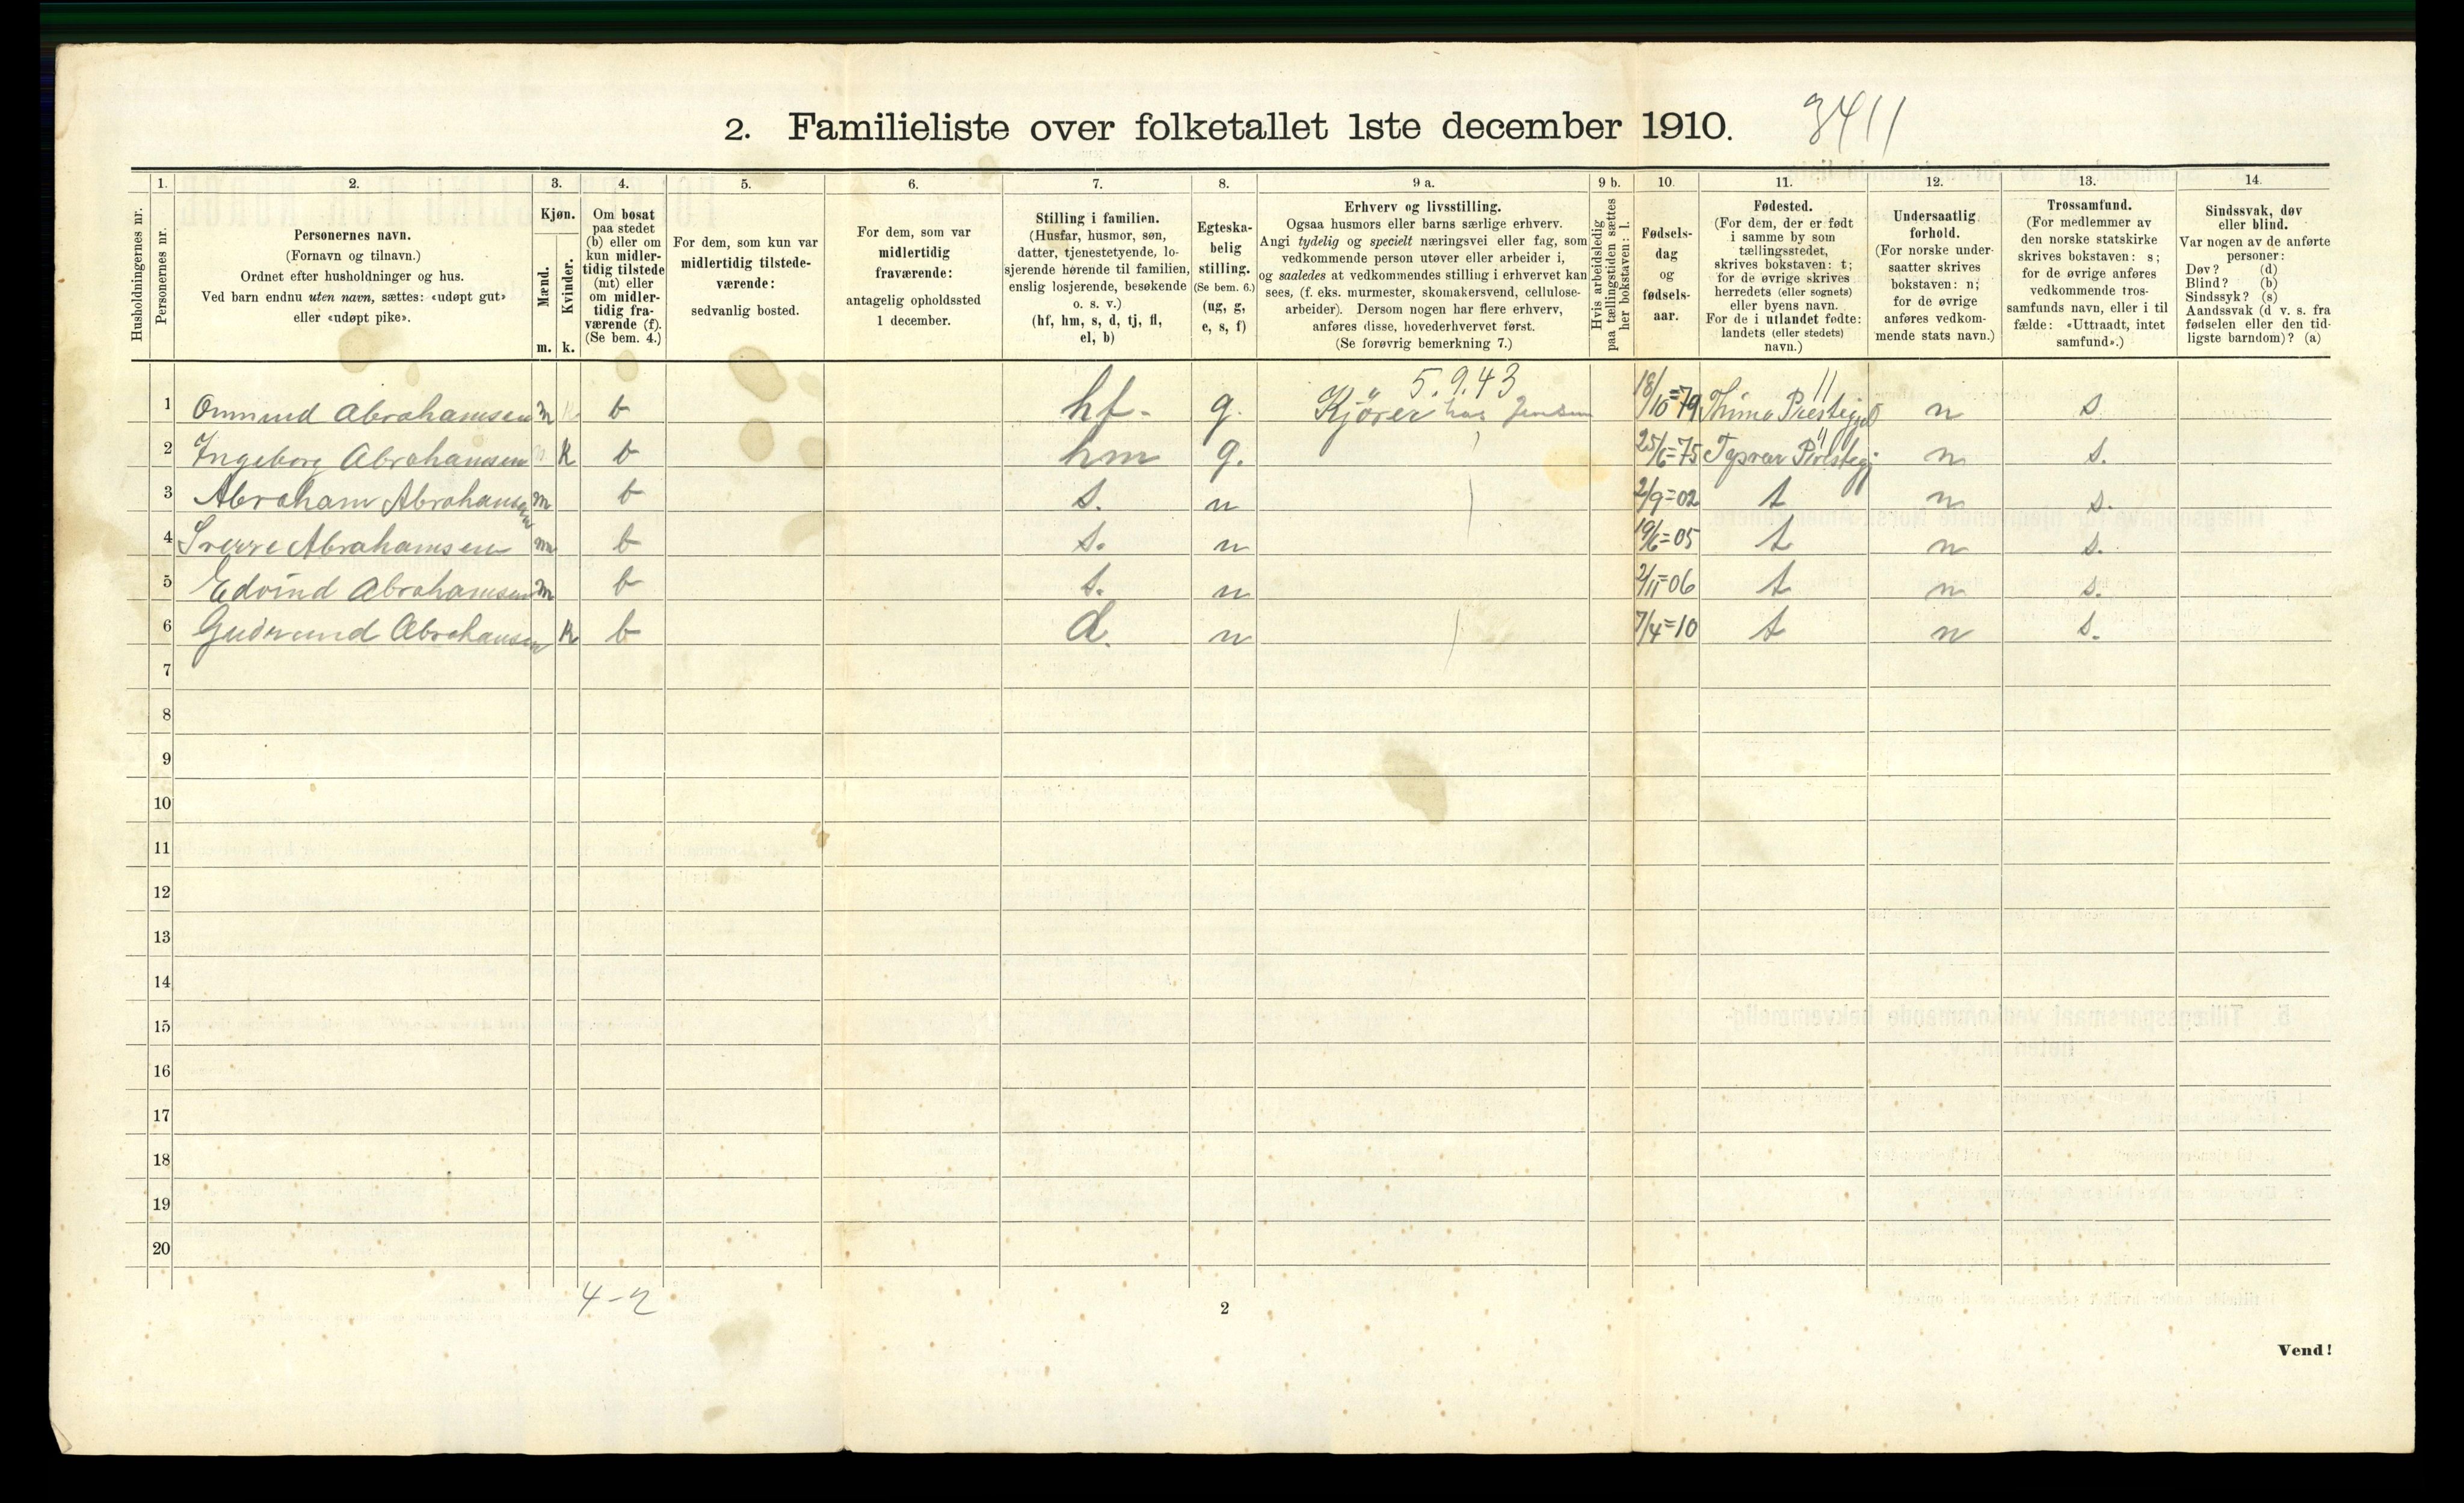 2. Familieliste over folketallet 1ste december 1910. 3411
Husholdningernes nr.
1. Personernes nr.
2. Personernes navn.
(Fornavn og tilnavn.)
Ordnet efter husholdninger og hus.
Ved barn endnu uten navn, sættes: «udøpt gut»
eller «udøpt pike».
3. Kjøn.
Mænd. m.
Kvinder. k.
4. Om bosat
paa stedet
(b) eller om
kun midler-
tidig tilstede
(mt) eller
om midler-
tidig fra-
værende (f).
(Se bem. 4.)
5. For dem, som kun var
midlertidig tilstede-
værende:
sedvanlig bosted.
6. For dem, som var
midlertidig
fraværende:
antagelig opholdssted
1 december.
7. Stilling i familien.
(Husfar, husmor, søn,
datter, tjenestetyende, lo-
sjerende hørende til familien,
enslig losjerende, besøkende
o. s. v.)
(hf, hm, s, d, tj, fl,
el, b)
8. Egteska-
belig
stilling.
(Se bem. 6.)
(ug, g,
e, s, f)
9 a. Erhverv og livsstilling.
Ogsaa husmors eller barns særlige erhverv.
Angi tydelig og specielt næringsvei eller fag, som
vedkommende person utøver eller arbeider i,
og saaledes at vedkommendes stilling i erhvervet kan
sees, (f. eks. murmester, skomakersvend, cellulose-
arbeider). Dersom nogen har flere erhverv,
anføres disse, hovederhvervet først.
(Se forøvrig bemerkning 7.)
9 b. Hvis arbeidsledig
paa tællingstiden sættes
her bokstaven: l.
10. Fødsels-
dag
og
fødsels-
aar.
11. Fødested.
(For dem, der er født
i samme by som
tællingsstedet,
skrives bokstaven: t;
for de øvrige skrives
herredets (eller sognets)
eller byens navn.
For de i utlandet fødte:
landets (eller stedets)
navn.)
12. Undersaatlig
forhold.
(For norske under-
saatter skrives
bokstaven: n;
for de øvrige
anføres vedkom-
mende stats navn.)
13. Trossamfund.
(For medlemmer av
den norske statskirke
skrives bokstaven: s;
for de øvrige anføres
vedkommende tros-
samfunds navn, eller i til
fælde: «Uttraadt, intet
samfund».)
14. Sindssvak, døv
eller blind.
Var nogen av de anførte
personer:
Døv? (d)
Blind? (b)
Sindssyk? (s)
Aandssvak (d v. s. fra
fødselen eller den tid-
ligste barndom)? (a)
5.9.43 11
1 Ommund Abrahamsen m b hf. g. Kjører hos Jensen 18/10=79 Thime Prestegj n s
2 Ingeborg Abrahamsen k b hm g. 25/6=75 Tysvær Prestegj n s.
3 Abraham Abrahamsen m b s. u 2/9=02 t n s.
4 Sverre Abrahamsen m b s. u 19/6=05 t n s.
5 Edvind Abrahamsen m b s. u 2/11=06 t n s.
6 Gudrund Abrahamsen k b d. u 7/4=10 t n s.
7
8
9
10
11
12
13
14
15
16
17
18
19
20
4-2
2
Vend!